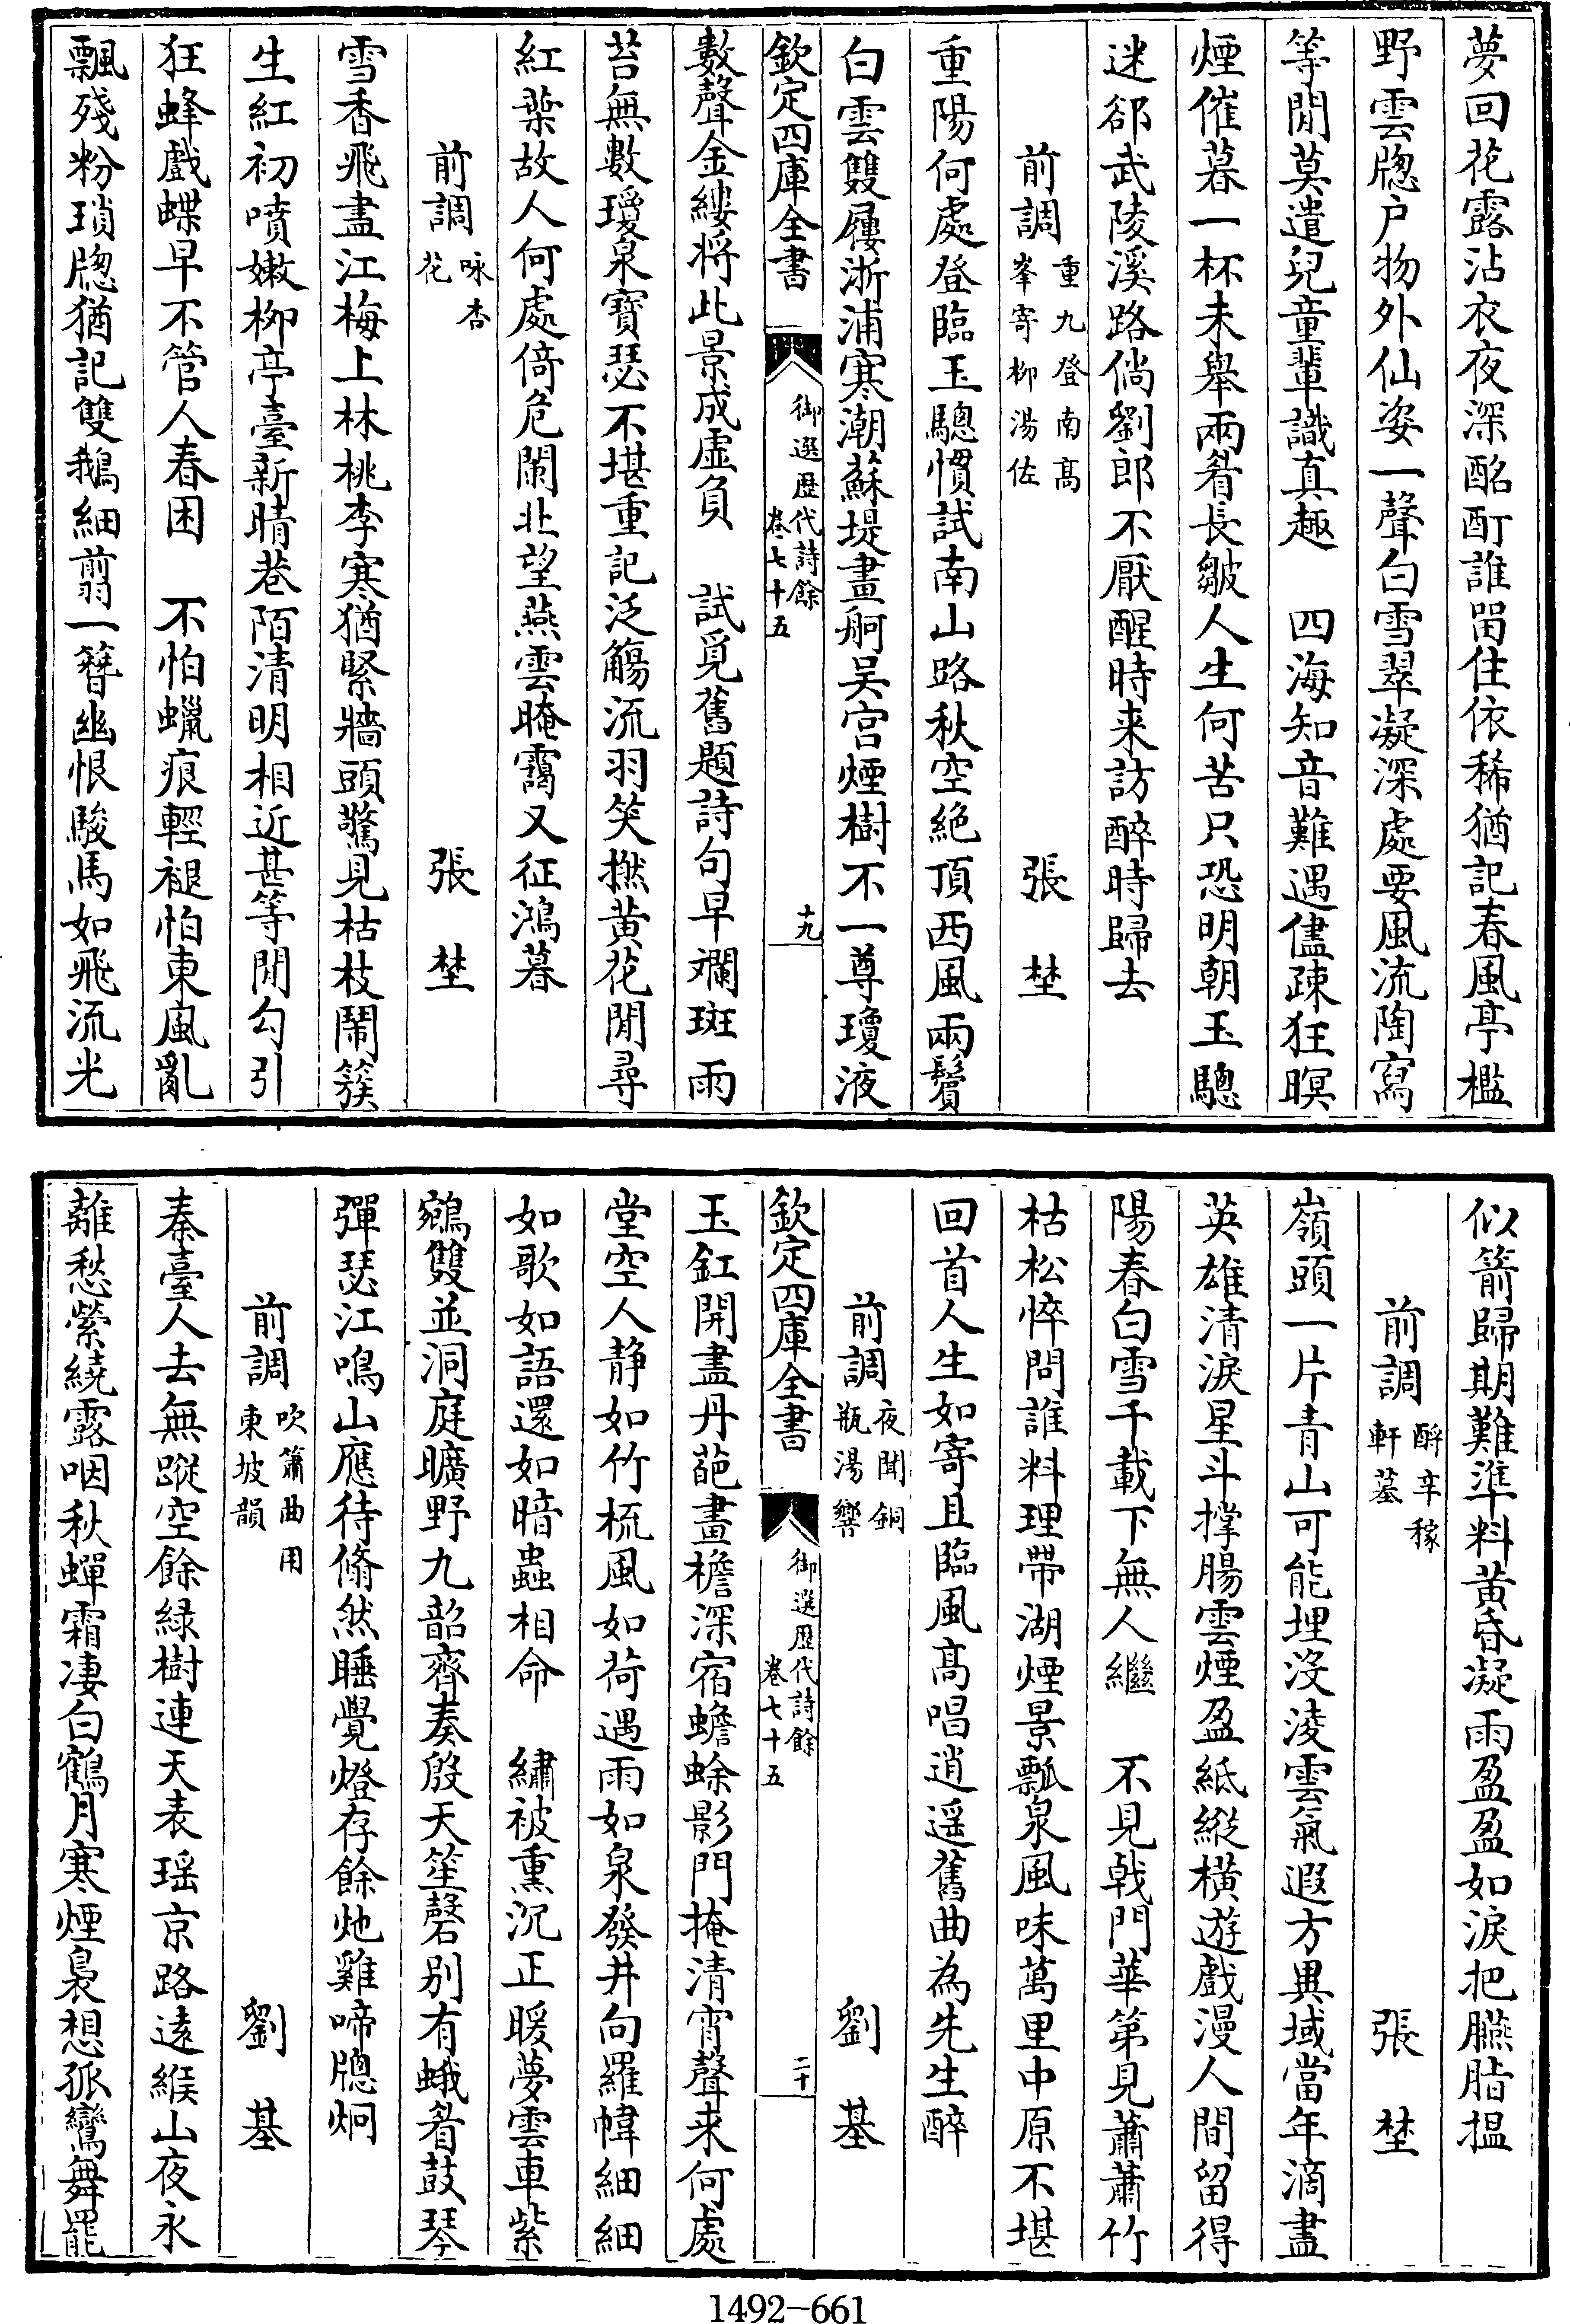 夢回花露沾衣夜深酩酊誰留住依稀猶記春風亭檻
野雲牎户物外仙姿一聲白雪翠凝深處要風流陶寫
等閒莫遣兒童輩識真趣　四海知音難遇儘疎狂暝
煙催暮一杯未舉兩眉長皺人生何苦只恐明朝玉驄
迷卻武陵溪路倘劉郎不厭醒時来訪醉時歸去
前調重九登南高峯寄柳湯佐　張埜
重陽何處登臨玉驄慣試南山路秋空絶頂西風兩鬢
白雲雙屨浙浦寒潮蘇堤畫舸吴宫煙樹不一尊瓊液
欽定四庫全書　御選歴代詩餘卷七十五　十九
數聲金縷将此景成虚負　試覓舊題詩句早斕斑雨
苔無數瓊泉寶瑟不堪重記泛觴流羽笑撚黄花閒尋
紅葉故人何處倚危闌北望燕雲晻靄又征鴻暮
前調咏杏花　張埜
雪香飛盡江梅上林桃李寒猶緊牆頭驚見枯枝鬧簇
生紅初噴嫩柳亭臺新晴巷陌清明相近甚等閒勾引
狂蜂戲蝶早不管人春困　不怕蠟痕輕褪怕東風亂
飄殘粉瑣牎猶記雙鵝細翦一簪幽恨駿馬如飛流光
似箭歸期難準料黄昏凝雨盈盈如淚把臙脂揾
前調酹辛稼軒墓　張埜
嶺頭一片青山可能埋沒淩雲氣遐方異域當年滴盡
英雄清淚星斗撐腸雲煙盈紙縱橫遊戲漫人間留得
陽春白雪千載下無人繼　不見戟門華第見蕭蕭竹
枯松悴問誰料理帶湖煙景瓢泉風味萬里中原不堪
回首人生如寄且臨風髙唱逍遥舊曲為先生醉
前調夜聞銅瓶湯響　劉基
欽定四庫全書　御選歴代詩餘卷七十五　二十
玉釭開盡丹葩畫檐深宿蟾蜍影門掩清宵聲来何處
堂空人静如竹梳風如荷遇雨如泉發井向羅幃細細
如歌如語還如暗蟲相命　繡被熏沉正暖夢雲車紫
鵷雙並洞庭曠野九韶齊奏殷天笙磬别有蛾眉鼓琴
彈瑟江鳴山應待翛然睡覺燈存餘灺雞啼牎炯
前調吹簫曲用東坡韻　劉基
秦臺人去無蹤空餘緑樹連天表瑶京路遠緱山夜永
離愁縈繞露咽秋蟬霜凄白鶴月寒煙裊想孤鸞舞罷
1492-661